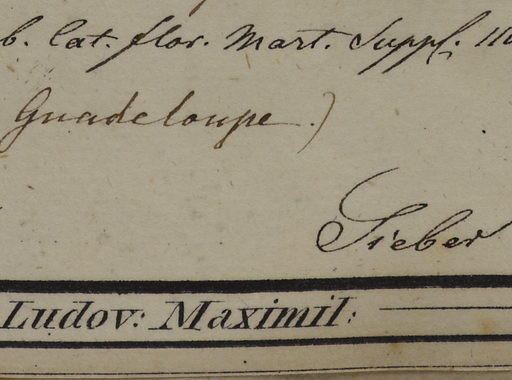 b. Cat. flor. Mart. Suppl.
Guadeloupe.)
Sieber
Ludov: Maximil: